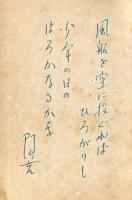 風船を空に投ぐれば
ひろがりし
少年の日の
はろかなるかな